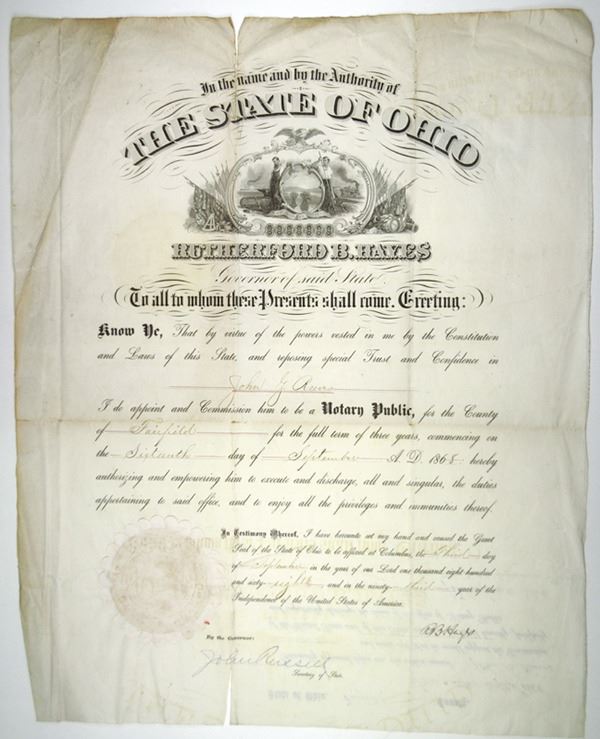 In the name and by the Authority of
THE STATE OF OHIO
RUTHERFORD B. HAYES
Governor of said State.
To all to whom these Presents shall come, Greeting:
Know Ye, That by virtue of the powers vested in me by the Constitution
and Laws of this State, and reposing special Trust and Confidence in
John
I do appoint and Commission him to be a Notary Public, for the County
of Fairfield for the full term of three years, commencing on
the day of September A.D. 1868 hereby
authorizing and empowering him to execute and discharge, all and singular, the duties
appertaining to said office, and to enjoy all the privileges and immunities thereof.
In Testimony Whereof, I have hereunto set my hand and caused the Great
Seal of the State of Ohio to be affixed at Columbus, the Third day
of September in the year of our Lord one thousand eight hundred
and sixty-eight and in the ninety-third year of the
Independence of the United States of America.
RB Hayes
By the Governor:
John Russell
Secretary of State.